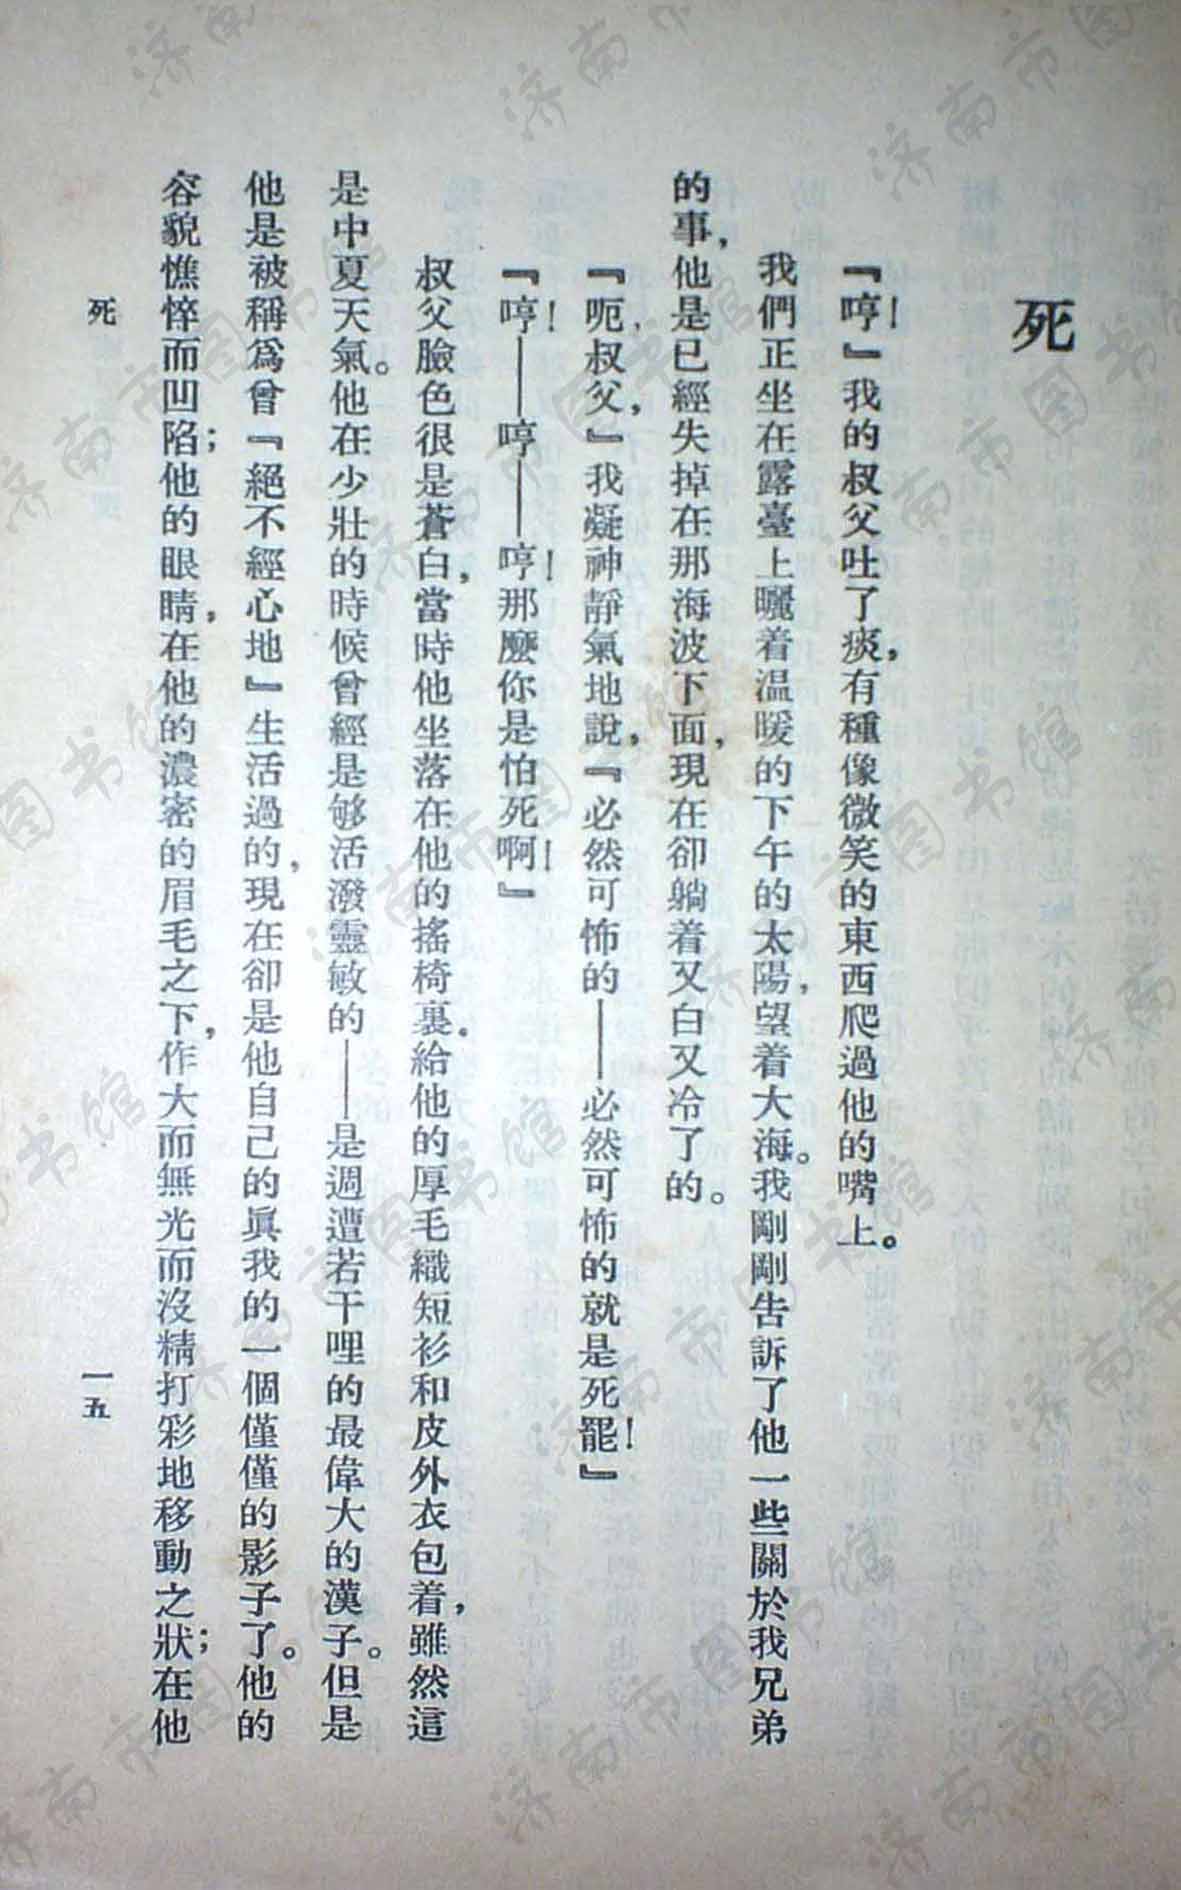 死
『哼！』我的叔父吐了痰，有種像微笑的東西爬過他的嘴上。
我們正坐在露臺上曬着温暖的下午的太陽，望着大海。我剛剛告訴了他一些關於我兄弟
的事，他是已經失掉在那海波下面，現在卻躺着又白又冷了的。
『呃，叔父，』我凝神靜氣地說，『必然可怖的——必然可怖的就是死罷！』
『哼！——哼——哼！那麼你是怕死啊！』
叔父臉色很是蒼白，當時他坐落在他的搖椅裏。給他的厚毛織短衫和皮外衣包着，雖然這
是中夏天氣。他在少壯的時候曾經是够活潑靈敏的——是週遭若干哩的最偉大的漢子。但是
他是被稱爲曾『絕不經心地』生活過的，現在卻是他自己的眞我的一個僅僅的影子了。他的
容貌憔悴而凹陷；他的眼睛，在他的濃密的眉毛之下，作大而無光而沒精打彩地移動之狀；在他
死
一五
济南市图书馆